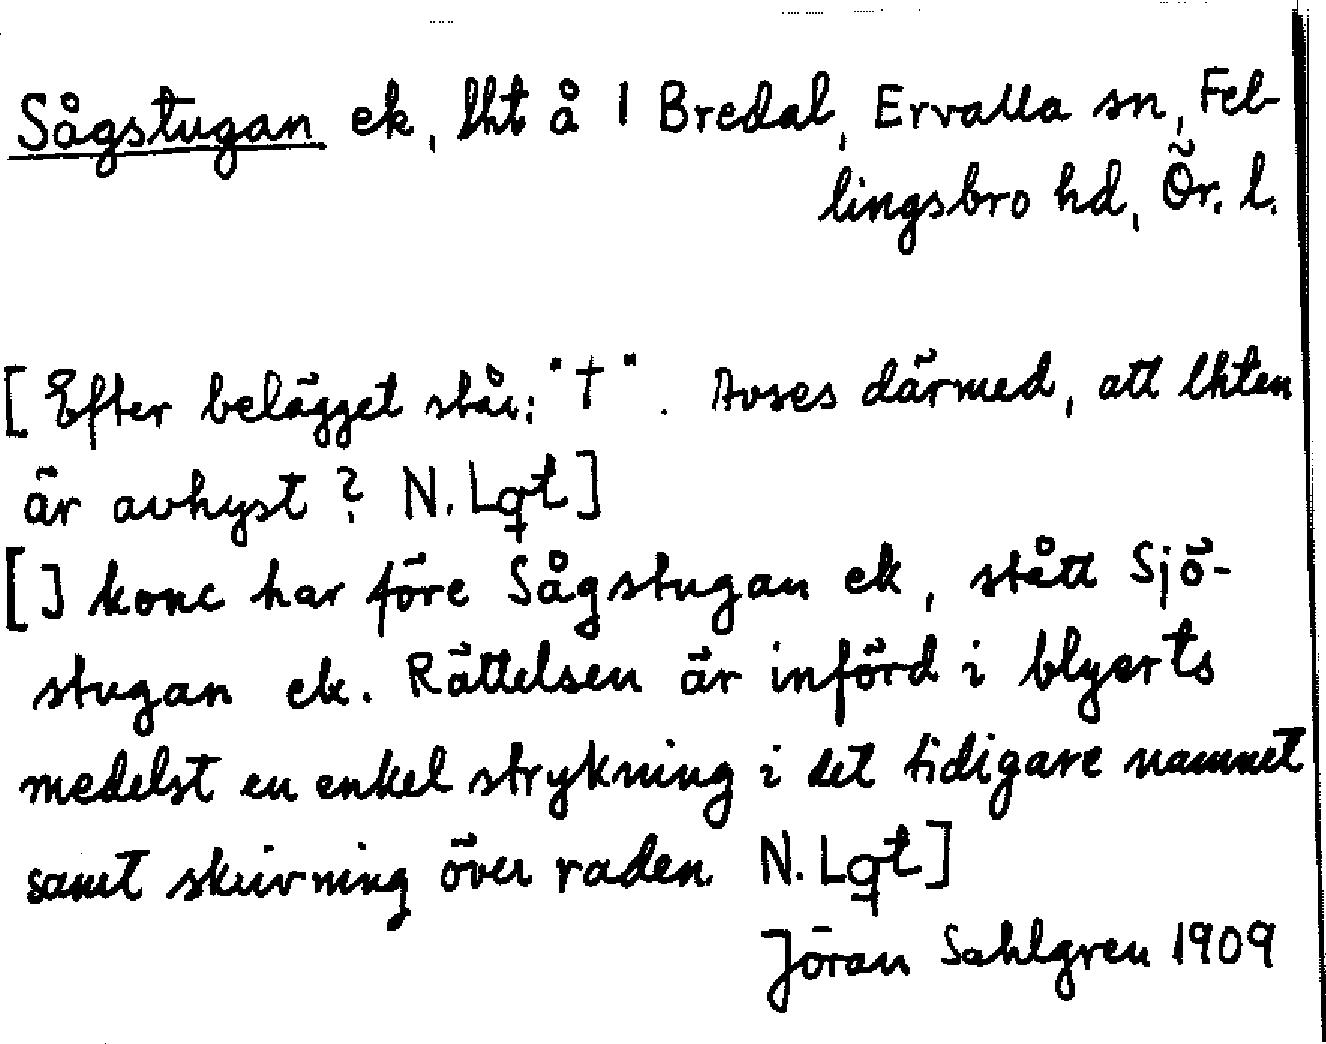 Sågstugan ek, lht å 1 Bredal, Ervalla sn, Fel-
lingsbro hd, Ör. l.
[Efter belägget står: "†". Avses därmed, att lhten
är avhyst? N. Lqt]
[I konc har före Sågstugan ek, stått Sjö-
stugan ek. Rättelsen är införd i blyerts
medelst en enkel strykning i det tidigare namnet
samt skrivning över raden. N. Lqt]
Jöran Sahlgren 1909